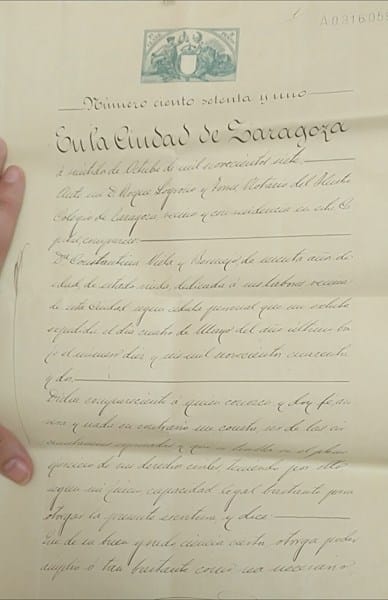 A0316059
Número ciento setenta y uno
En la Ciudad de Zaragoza
á veintidos de Octubre de mil novecientos siete
Ante mi D. Roque y Notario del Ilustre
Colegio de Zaragoza, vecino y con residencia en esta Ca
pital, comparece
Dª Constantina Viola y Bermejo de años de
edad, de estado viuda, dedicada á sus labores vecina
de esta Ciudad segun cedula personal que me exhibe
expedida el dia cuatro de Mayo del año ultimo ba
jo el numero diez y seis mil novecientos cuarenta
y dos.
Dicha compareciente á quien conozco y doy fe
y nada en contrario me consta
que se halla en el pleno
ejercicio de sus derechos civiles, teniendo por ello
segun mi juicio capacidad legal bastante para
otorgar la presente escritura y dice
Que de su buen grado, ciencia cierta, otorga poder
amplio y tan bastante como sea necesario